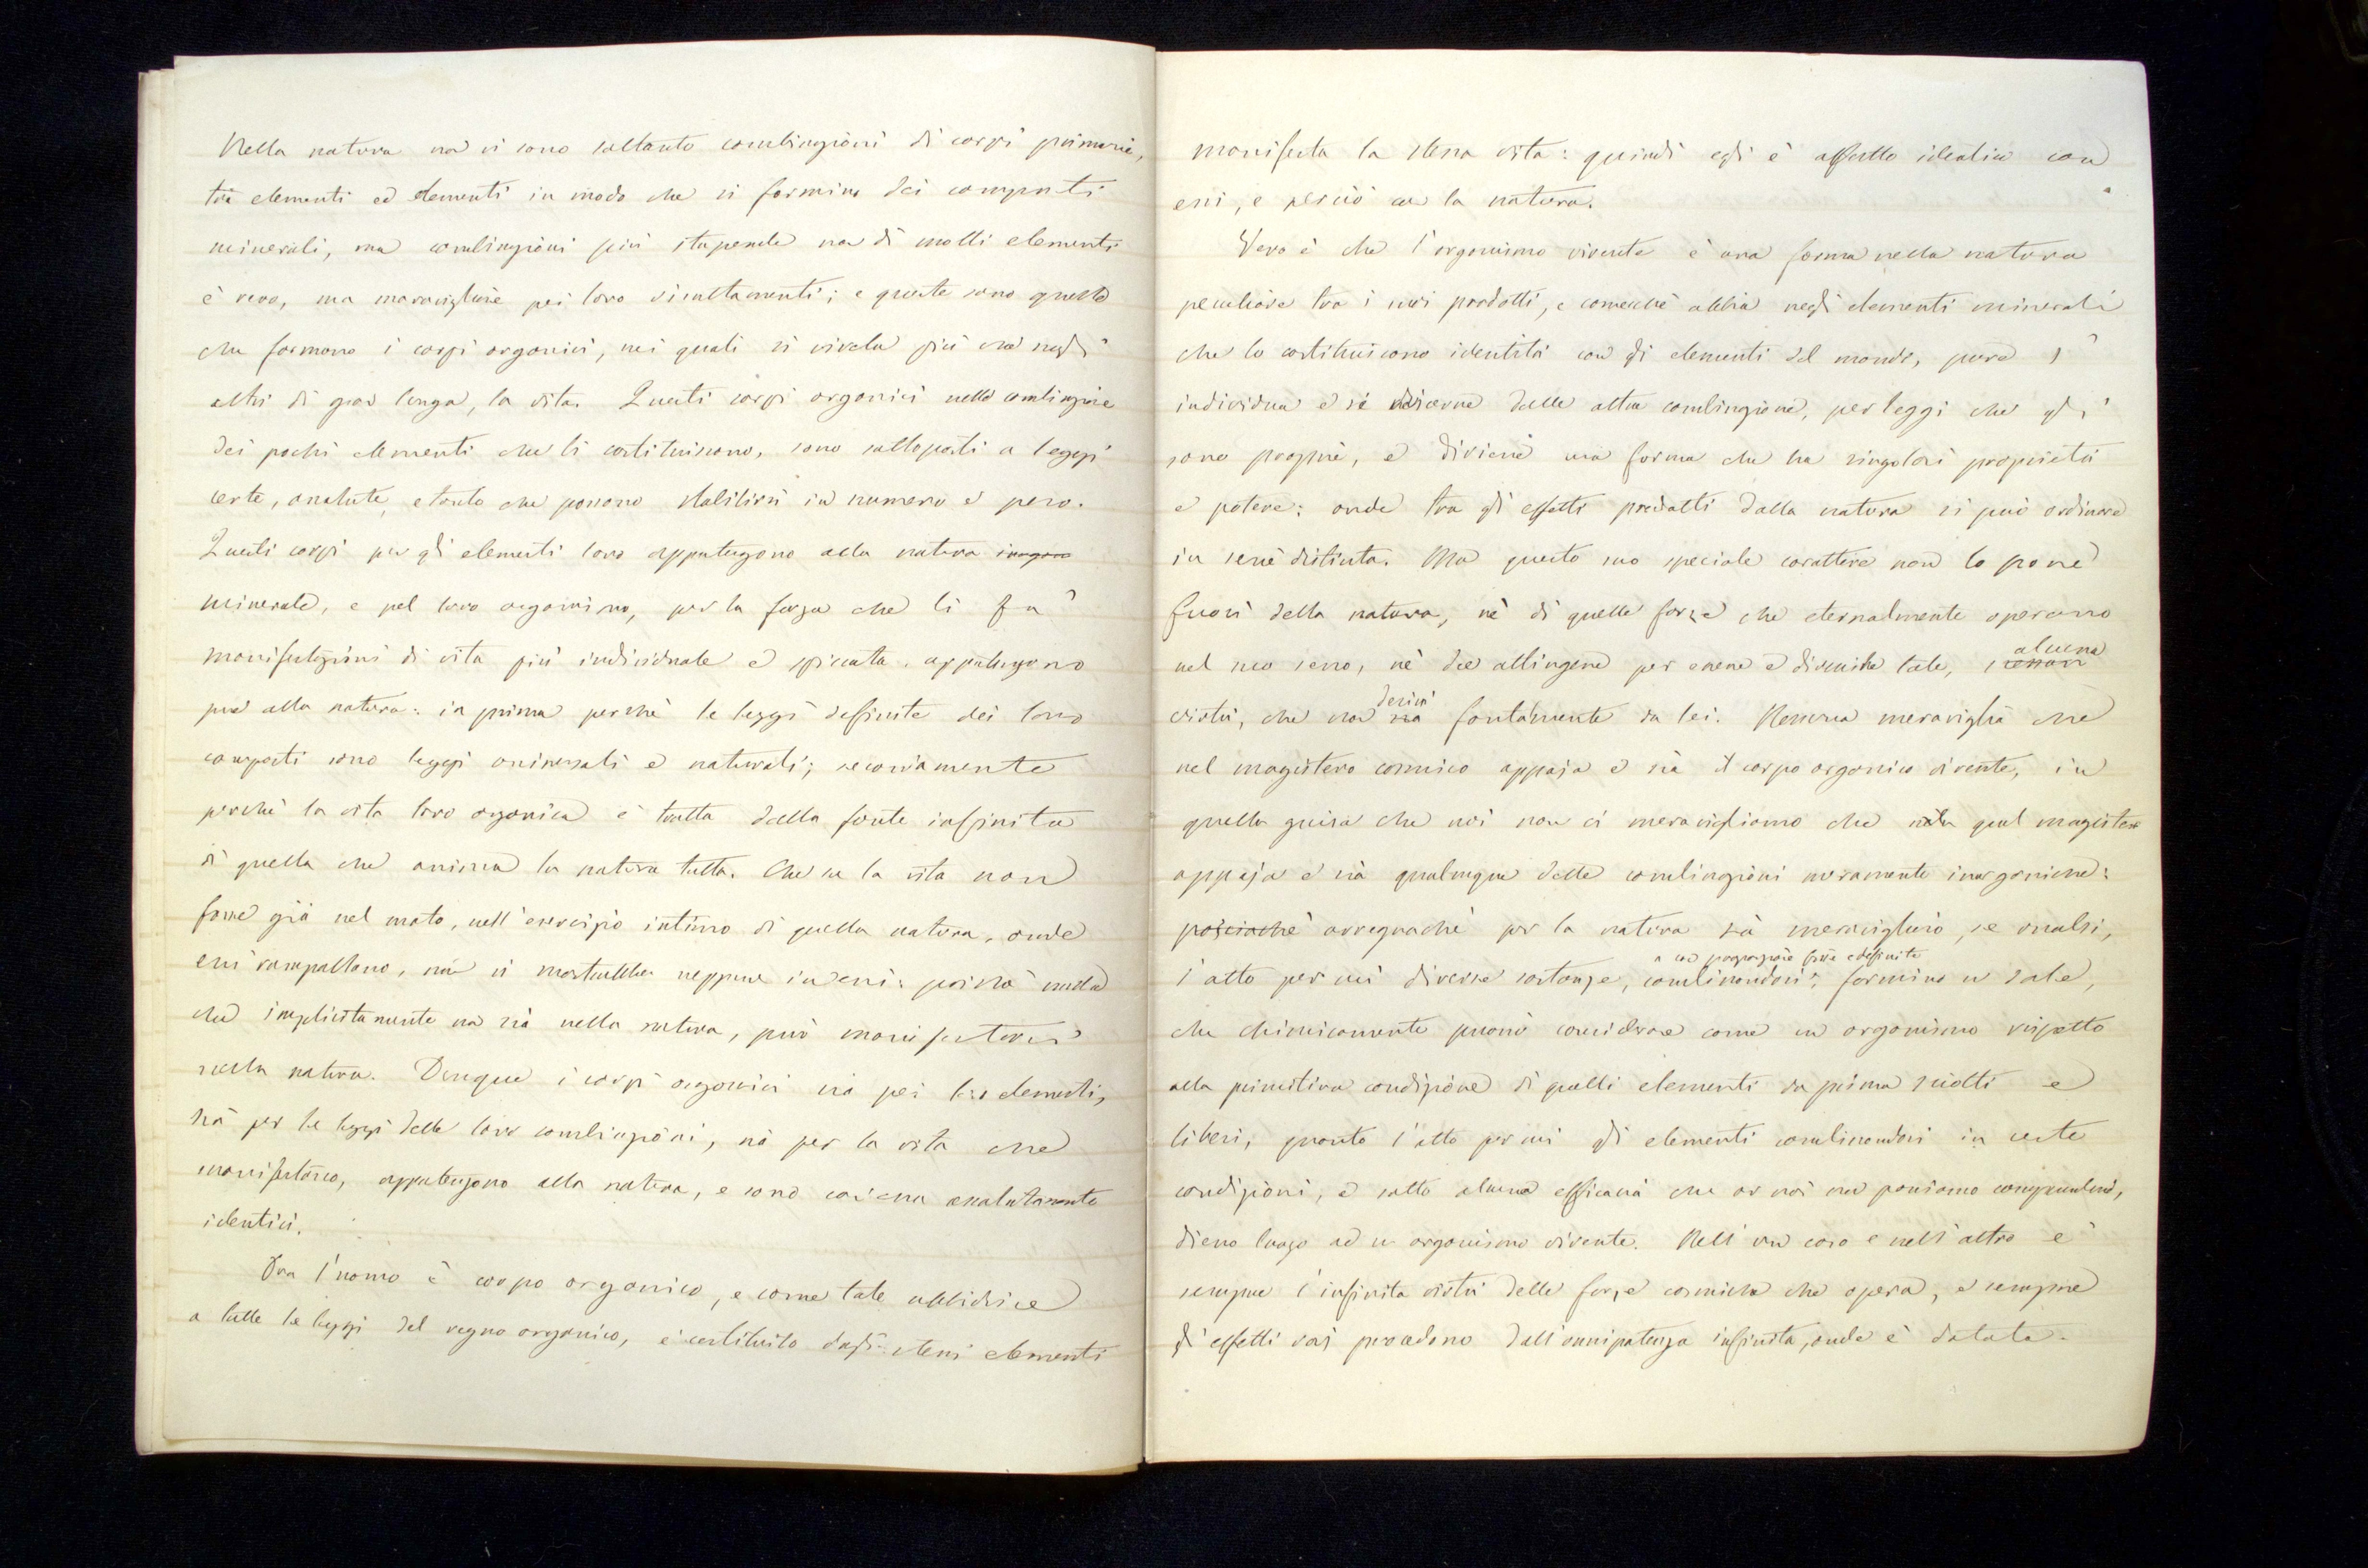 Nella natura non vi sono soltanto combinazioni di corpi primarie,
tra elementi ed elementi in modo che si formino dei composti
minerali, ma combinazioni più stupende non di molti elementi
è vero, ma maravigliose pei loro risultamenti; e queste sono quelle
che formano i corpi organici, nei quali si rivela più che negli
altri di gran lunga, la vita. Questi corpi organici nella combinazione
dei pochi elementi che li costituiscono, sono sottoposti a leggi
certe, assolute, e tanto che possono stabilirsi in numero e peso.
Questi corpi per gli elementi loro appartengono alla natura inorgana
minerale, e pel loro organismo, per la forza che li fa
manifestazioni di vita più individuale e spiccata, appartengono
pure alla natura: in prima perchè le leggi definite dei loro
composti sono leggi universali e naturali; secondamente
perchè la vita loro organica è tratta dalla fonte infinita
di quella che anima la natura tutta. Che se la vita non
fosse già nel moto, nell'esercizio intimo di quella natura, onde
essi rampollano, non si mostrerebbe neppure in essi: poichè nulla
che implicitamente non sia nella natura, può manifestarsi
nella natura. Dunque i corpi organici sia pei loro elementi,
sia per le leggi delle loro combinazioni, sia per la vita che
manifestano, appartengono alla natura, e sono con essa assolutamente
identici.
Ora l'uomo è corpo organico, e come tale ubbidisce
a tutte le leggi del regno organico, è costituito dagli stessi elementi
manifesta la stessa vita: quindi egli è affatto identico con
essi, e perciò con la natura.
Vero è che l'organismo vivente è una forma nella natura
peculiare tra i suoi prodotti, e comecchè abbia negli elementi minerali
che lo costituiscono identità con gli elementi del mondo, pure s'
individua e si discerne dalle altre combinazione, per leggi che gli
sono proprie, e diviene una forma che ha singolari proprietà
e potere: onde tra gli effetti prodotti dalla natura si può ordinare
in serie distinta. Ma questo suo speciale carattere non lo pone
fuori della natura, nè di quelle forze che eternalmente operano
nel suo seno, nè dee attingere per essere e divenire tale, nessun alcuna
virtù, che non sia derivi fontalmente da lei. Nessuna meraviglia che
nel magistero cosmico appaja e sia il corpo organico vivente, in
quella guisa che noi non ci meravigliamo che nella quel magistero
appaja e sia qualunque delle combinazioni meramente inorganiche:
posciachè avvegnachè per la natura sia meraviglioso, se vuolsi,
l'atto per cui diverse sostanze, combinandosi, a con proporzioni fisse e definite formino un sale,
che chimicamente puossi considerare come un organismo rispetto
alla primitiva condizione di quelli elementi da prima sciolti e
liberi, quanto l'atto per cui gli elementi combinandosi in certe
condizioni, e sotto alcuna efficacia che or noi non possiamo comprendere,
dieno luogo ad un organismo vivente. Nell'un caso e nell'altro è
sempre l'infinita virtù delle forze cosmiche che opera, e sempre
gli effetti suoi procedono dall'onnipotenza infinita, onde è dotata.